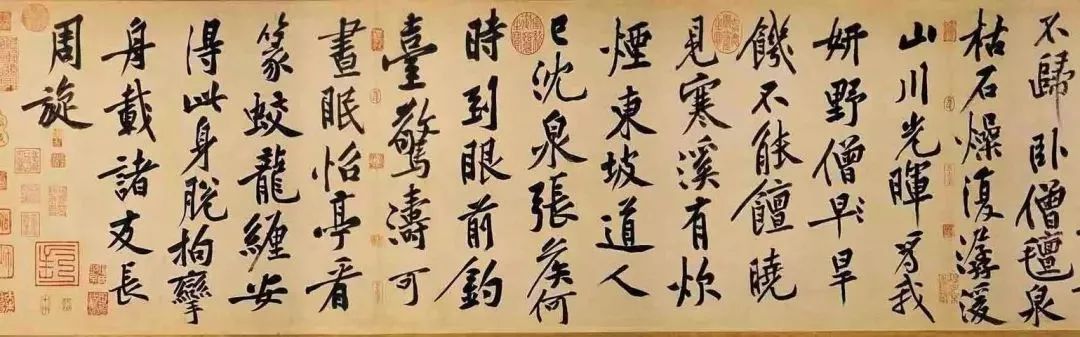 不歸卧僧氊泉
枯石燥復潺湲
山川光暉為我
妍野僧早旱
饑不能饘曉
見寒溪有炊
煙東坡道人
已沈泉張矦何
時到眼前釣
臺驚濤可
晝眠怡亭看
篆蛟龍纏安
得此身脫拘攣
舟載諸友長
周旋